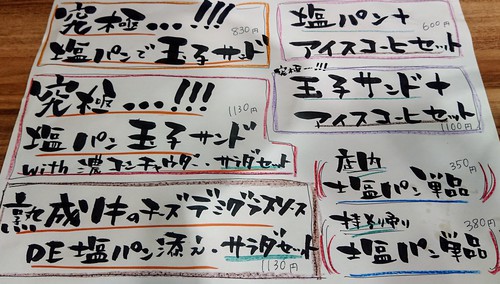 究極…!!!
830円
塩パンで玉子サンド
究極…!!!
1130円
塩パン玉子サンド
with 濃コーンチャウダー・サラダセット
熟成牛のチーズデミグラスソース
DE塩パン添え・サラダセット
1130円
塩パン+
600円
アイスコーヒーセット
究極…!!!
玉子サンド+
アイスコーヒーセット
1100円
店内
350円
塩パン単品
持ち帰り
380円
塩パン単品